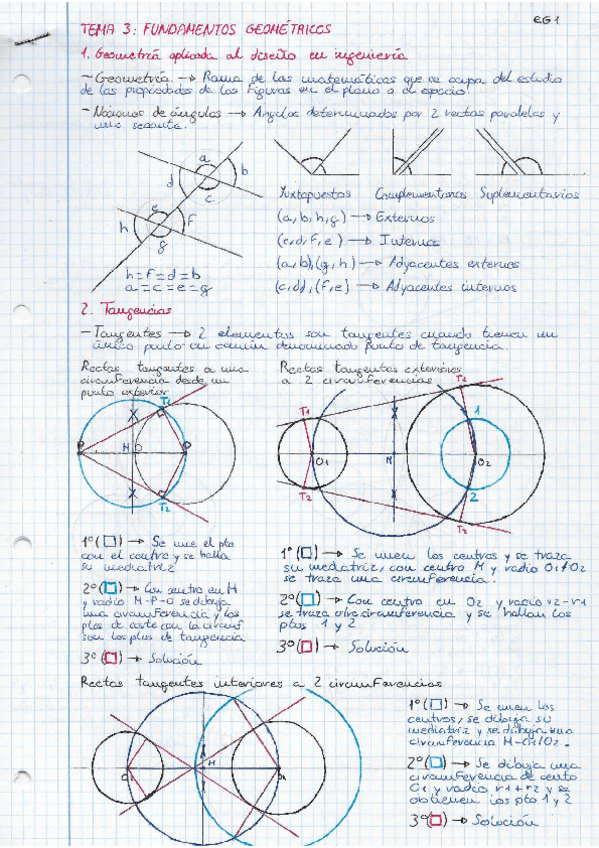 EG 1
TEMA 3: FUNDAMENTOS GEOMÉTRICOS
1. Geometría aplicada al diseño en ingeniería
- Geometría → Rama de las matemáticas que se ocupa del estudio
de las propiedades de las figuras en el plano o el espacio.
- Nociones de ángulos → Ángulos determinados por 2 rectas paralelas y
una secante.
a
b
d
c
e
h
F
g
h = F = d = b
a = c = e = g
Yuxtapuestos Complementarios Suplementarios
(a,b,h,g) → Externos
(c,d,F,e) → Internos
(a,b),(g,h) → Adyacentes externos
(c,d),(F,e) → Adyacentes internos
2. Tangencias
- Tangentes → 2 elementos son tangentes cuando tienen un
único punto en común denominado punto de tangencia
Rectas tangentes a una
circunferencia desde un
punto exterior
T1
P
M
O
T2
1º (□) → Se une el pto
con el centro y se halla
su mediatriz
2º (□) → Con centro en M
y radio M-P-O se dibuja
una circunferencia y los
ptos de corte con la circunf
son los ptos de tangencia
3º (□) → Solución
Rectas tangentes exteriores
a 2 circunferencias
T1
T1
1
O1
M
O2
2
T2
T2
1º (□) → Se unen los centros y se traza
su mediatriz, con centro M y radio O1 ó O2
se traza una circunferencia.
2º (□) → Con centro en O2 y radio r2-r1
se traza otra circunferencia y se hallan los
ptos 1 y 2
3º (□) → Solución
Rectas tangentes interiores a 2 circunferencias
O1
M
1º (□) → Se unen los
centros, se dibuja su
mediatriz y se dibuja una
circunferencia M-O1/O2.
2º (□) → Se dibuja una
circunferencia de cento
O1 y radio r1+r2 y se
obtienen los pto 1 y 2
3º (□) → Solución